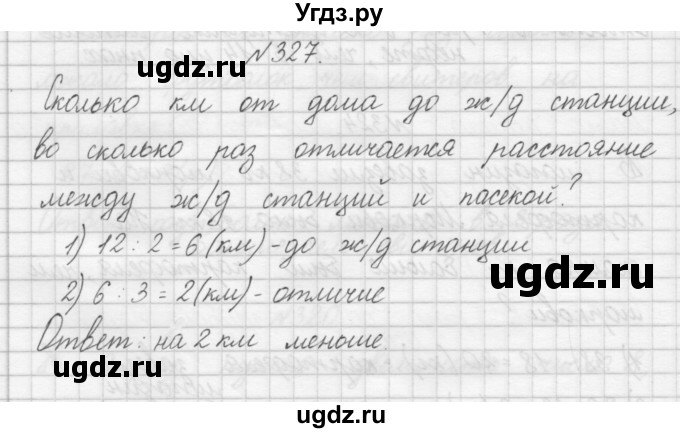 Угдз.ру
№327.
ugdz.ru ugdz.ru
Сколько км от дома до ж/д станции,
во сколько раз отличается расстояние
между ж/д станций и пасекой?
ugdz.ru ugdz.ru
1) 12 : 2 = 6 (км) - до ж/д станции
2) 6 : 3 = 2 (км) - отличие
ugdz.ru ugdz.ru
Ответ: на 2 км меньше.
ugdz.ru
ugdz.ru